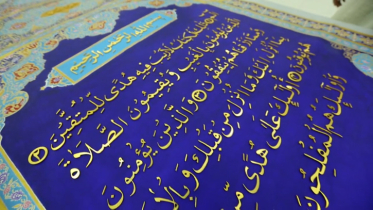 بِسْمِ اللَّهِ الرَّحْمَٰنِ الرَّحِيمِ
الم ذَٰلِكَ الْكِتَابُ لَا رَيْبَ فِيهِ هُدًى لِلْمُتَّقِينَ ٢
الَّذِينَ يُؤْمِنُونَ بِالْغَيْبِ وَيُقِيمُونَ الصَّلَاةَ
وَمِمَّا رَزَقْنَاهُمْ يُنْفِقُونَ ٣ وَالَّذِينَ يُؤْمِنُونَ
بِمَا أُنْزِلَ إِلَيْكَ وَمَا أُنْزِلَ مِنْ قَبْلِكَ وَبِالْآ
هُمْ يُوقِنُونَ أُولَٰئِكَ عَلَىٰ هُدًى مِنْ
وَأُولَٰئِكَ هُمُ الْمُفْلِحُونَ